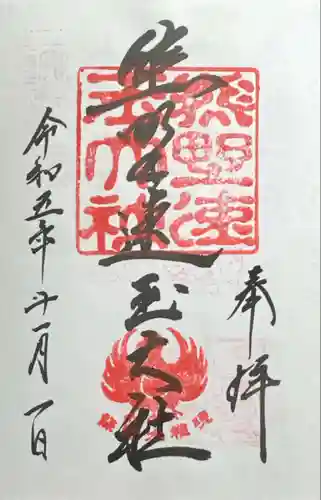 奉拝
熊野速玉大社
熊野速玉大社
令和五年十一月一日